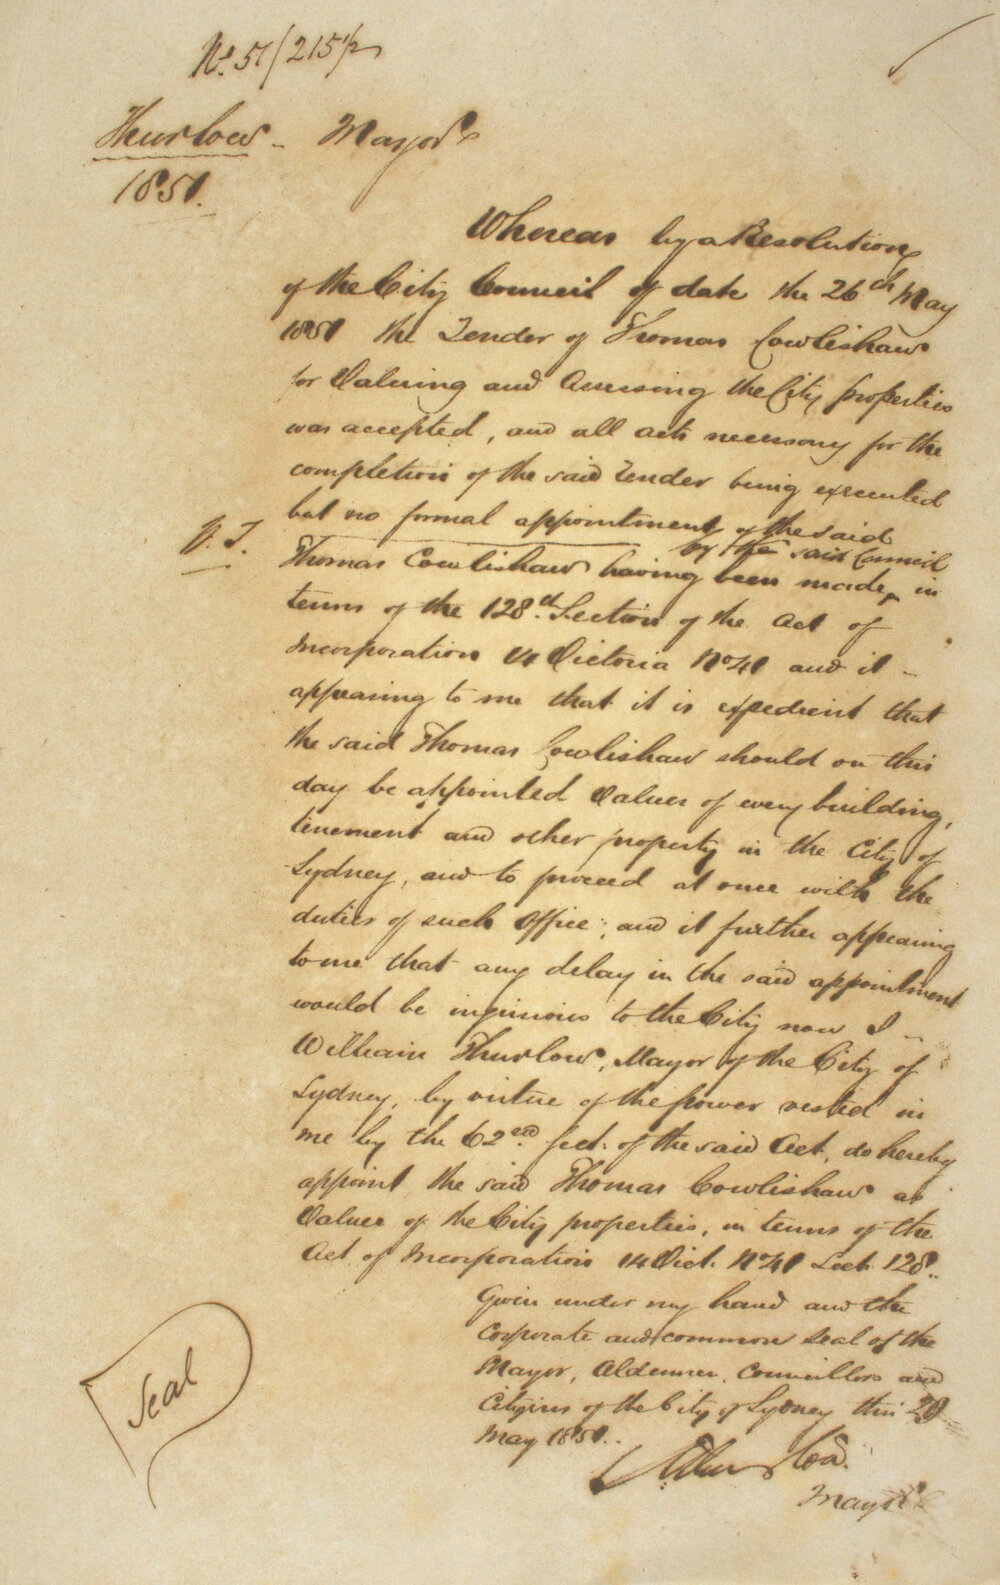 No. 51/215½
Thurlow - Mayor
1851.
Whereas by a Resolution
of the City Council of date the 26th May
1851 the Tender of Thomas Cowlishaw
for Valuing and Assessing the City properties
was accepted, and all acts necessary for the
completion of the said Tender being executed
but no formal appointment of the said
by the said Council
W. T.
Thomas Cowlishaw having been made ‸ in
terms of the 128th Section of the Act of
Incorporation 14 Victoria No 41 and it
appearing to me that it is expedient that
the said Thomas Cowlishaw should on this
day be appointed Valuer of every building,
tenement and other property in the City of
Sydney, and to proceed at once with the
duties of such office; and it further appearing
to me that any delay in the said appointment
would be injurious to the City now I
William Thurlow, Mayor of the City of
Sydney, by virtue of the power vested in
me by the 62nd Sect. of the said Act, do hereby
appoint the said Thomas Cowlishaw as
Valuer of the City properties, in terms of the
Act of Incorporation 14 Vict. No 41 Sect. 128.
Given under my hand and the
corporate and common Seal of the
Mayor, Aldermen, Councillors and
Citizens of the City of Sydney this
May 1851.
Seal
Mayor